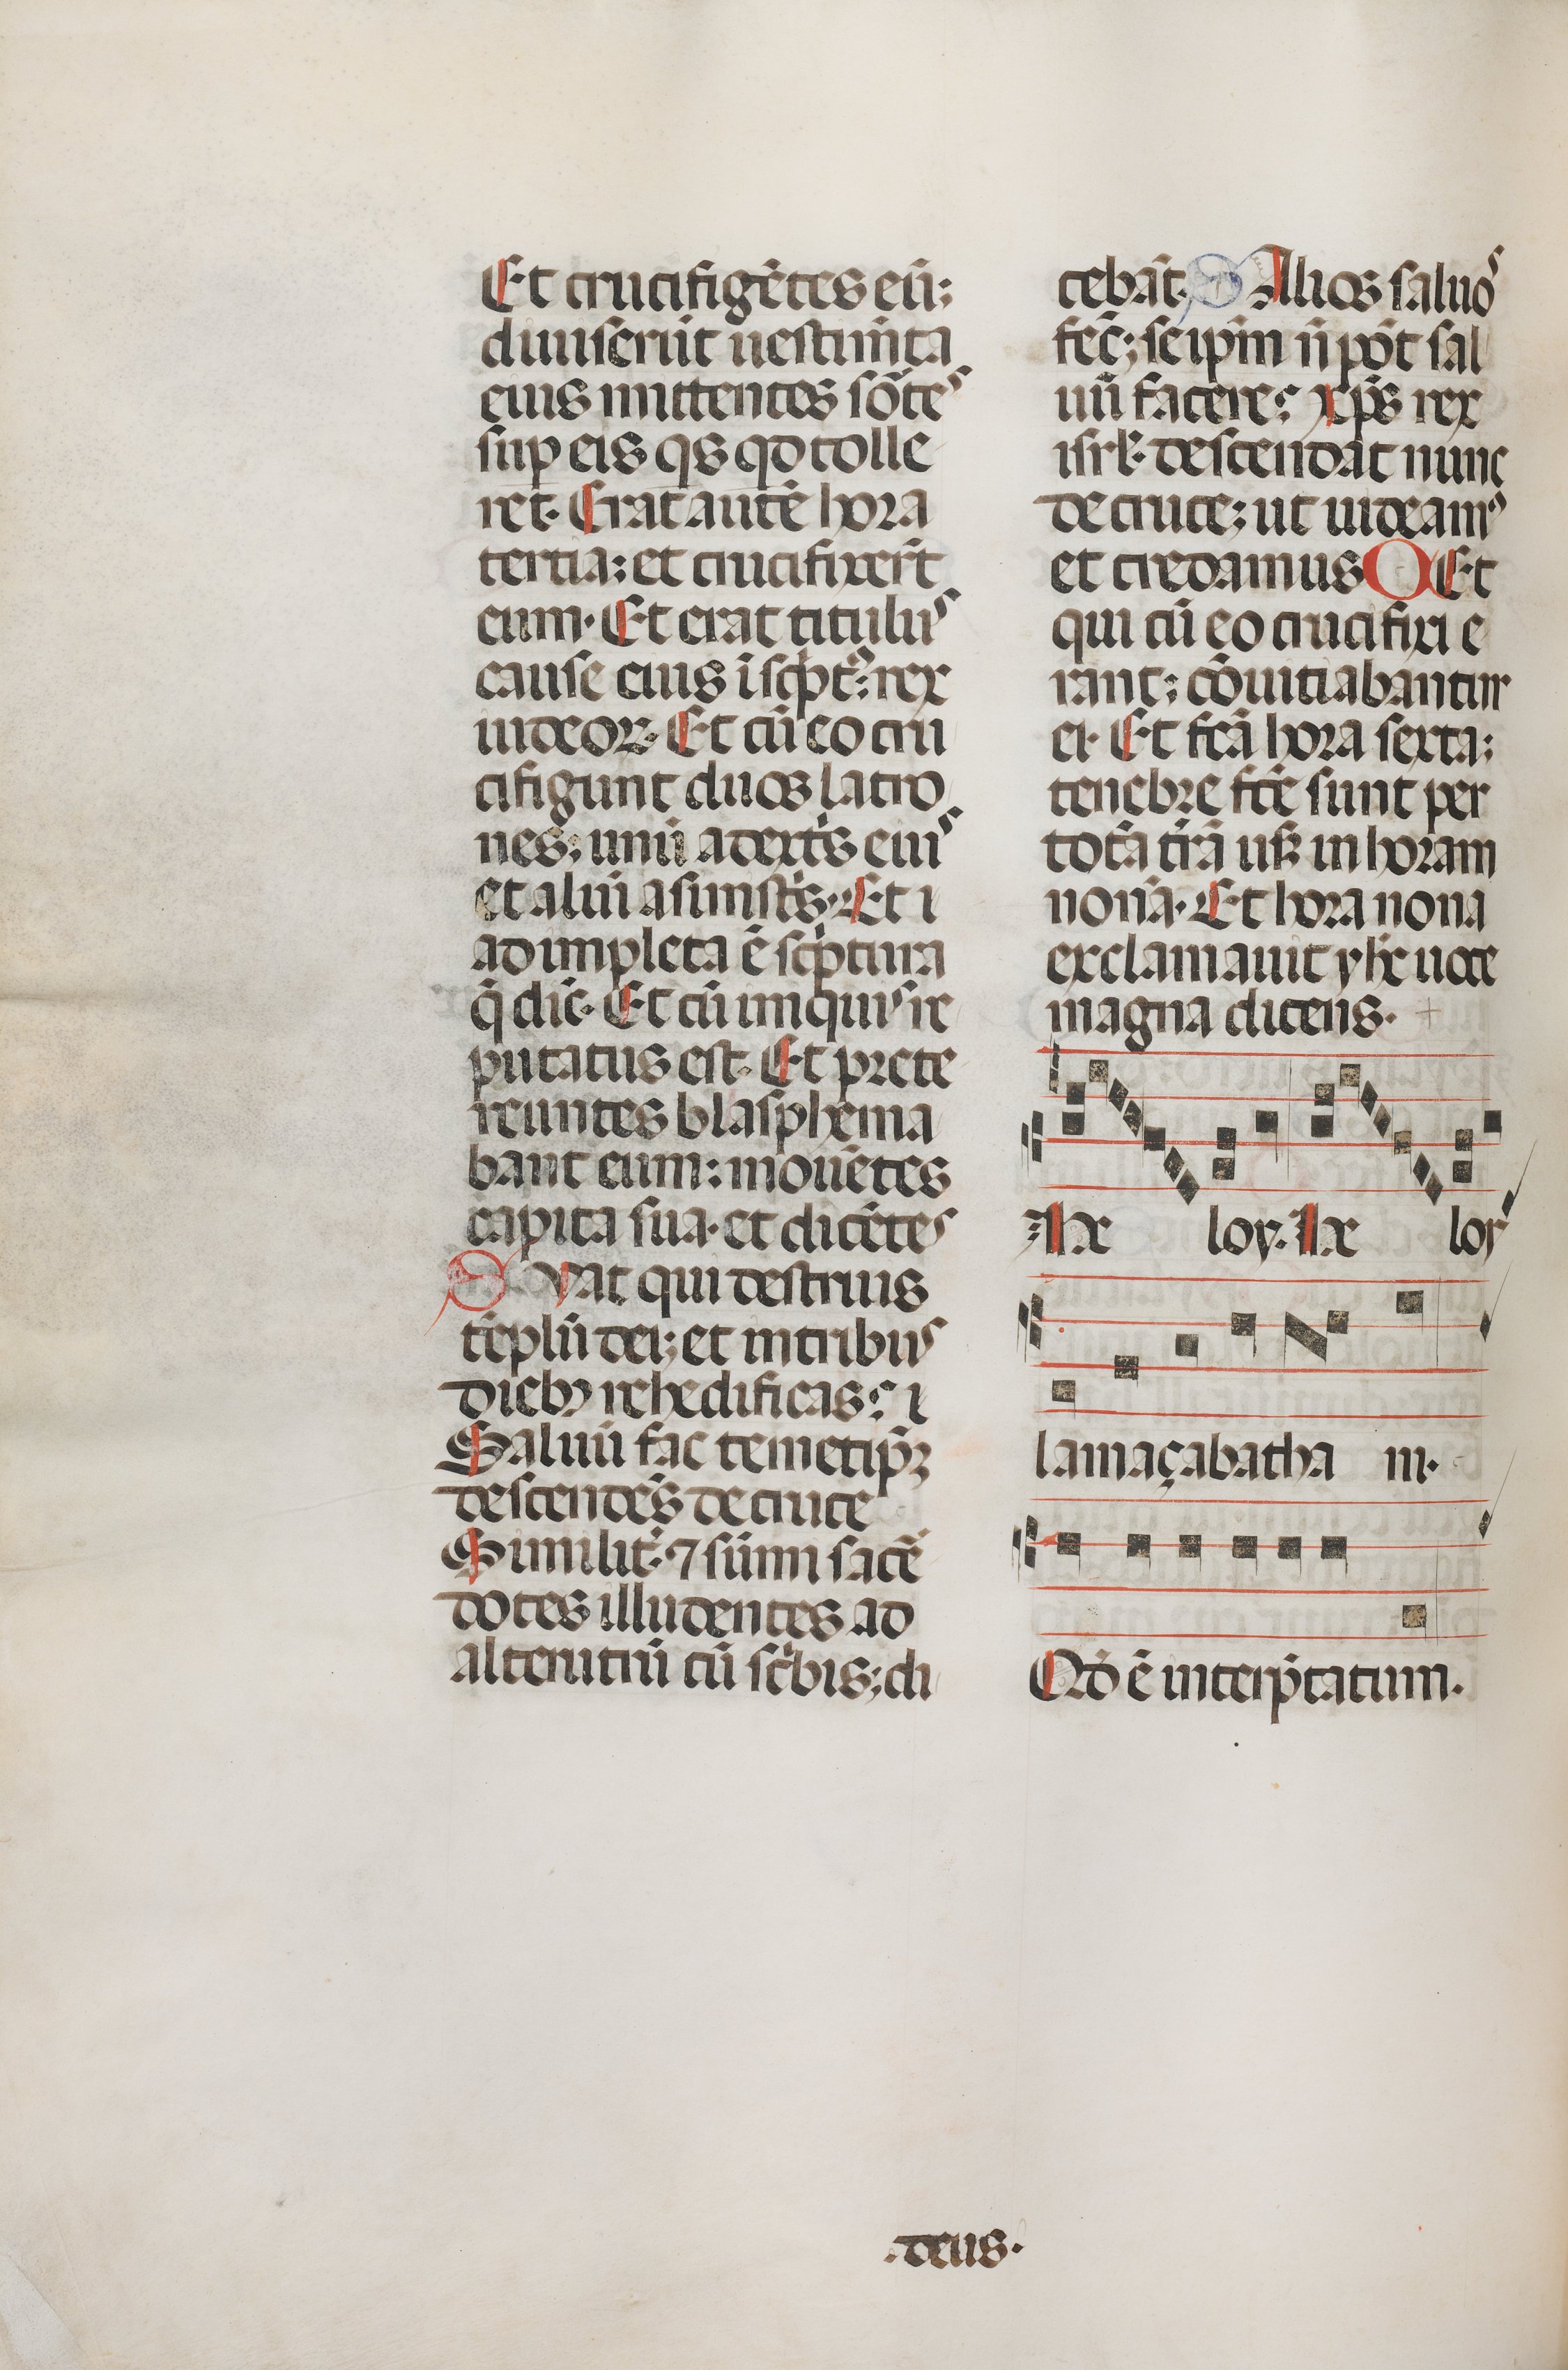 Et crucifigētes eū;
diuiserūt uestimīta
eius mittentes sōtes
sup eis qs qd tolle
ret. Erat autē hora
tertia; et crucifixer̄t
eum. Et erat titulus
cause eius īscͥpt᷒: rex
iudeoꝝ. Et cū eo cru
cifigunt duos latro
nes; unū a dextͥs eius
et aliū a sinistͥs. Et
adimpleta ē scͥptura
q̄ dic̄. Et cū iniquis re
putatus est. Et prete
reuntes blasphema
bant eum: mouētes
capita sua. et dicētes
S Vat qui destruis
tēplū dei; et in tribus
dieb; rehedificas;
Saluū fac temetip̄ꝫ
descendēs de cruce
Similit̄. ⁊ sūmi sacē
dotes illudentes ad
alterutrū cū scͥbis; di
cebāt. S Alios saluos
fec̄; seipm̄ n̄ pōt sal
uū facere; xp̄s rex
isrl̄. descendat nunc
de cruce; ut uideams
et credamus Et
qui cū eo crucifixi e
rant; cōuitiabantur
ei. Et fc̄ā hora sexta;
tenebre fc̄ē sunt per
totā tr̄ā usqꝫ in horam
nonā. Et hora nona
exclamauit yhc̄ uoce
magna dicens.
He loy. He loy
lamaçabatha ni.
Qd̄ ē interp̄tatum.
.deus.